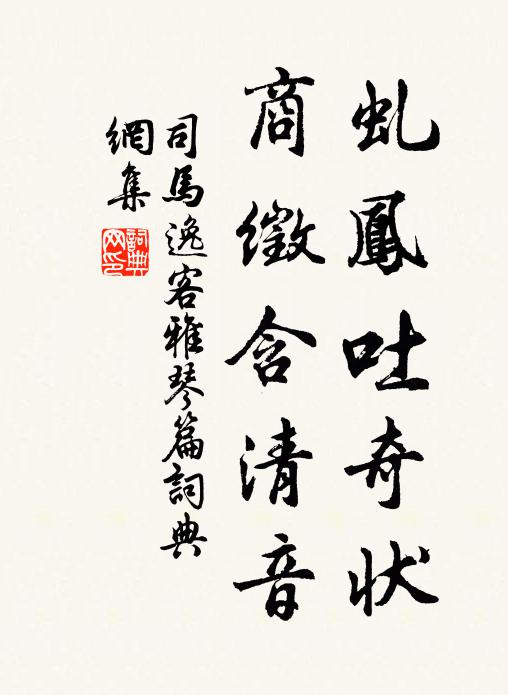 虬鳳吐奇狀
商徵含清音
司馬逸客雅琴篇詞典
網集
詞典网印